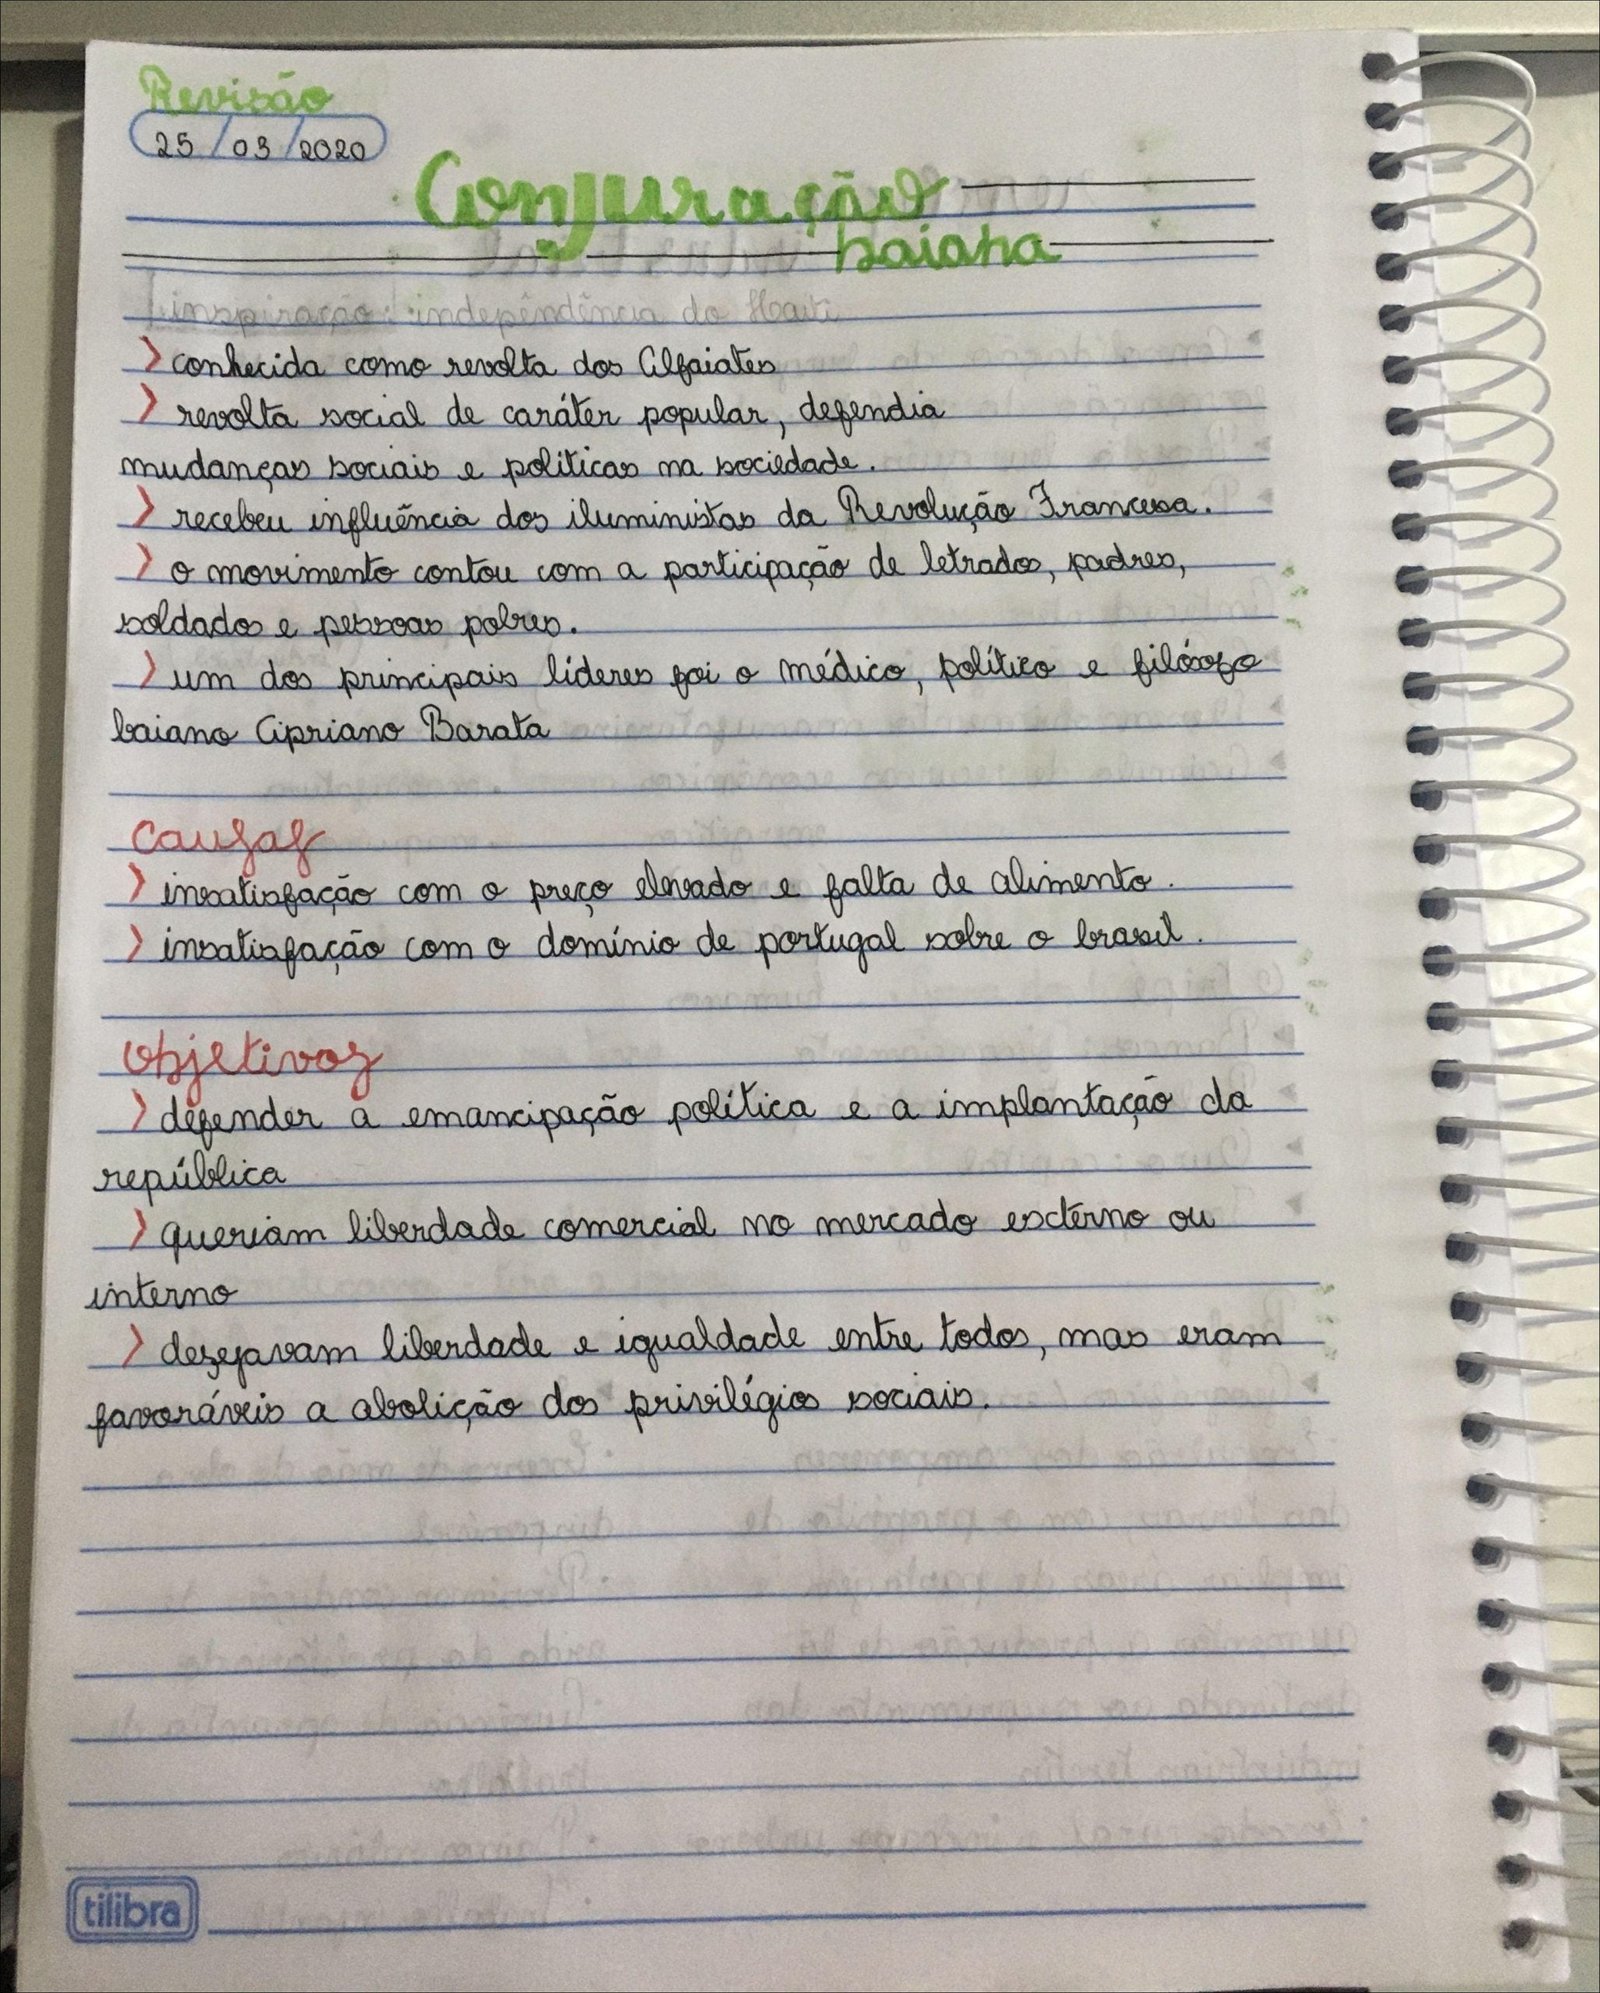 Revisão
25/03/2020
Conjuração
baiana
inspiração: independência do Haiti
> conhecida como revolta dos Alfaiates
> revolta social de caráter popular, defendia
mudanças sociais e políticas na sociedade.
> recebeu influência dos iluministas da Revolução Francesa.
> o movimento contou com a participação de letrados, padres,
soldados e pessoas pobres.
> um dos principais líderes foi o médico, político e filósofo
baiano Cipriano Barata
causas
> insatisfação com o preço elevado e falta de alimento.
> insatisfação com o domínio de portugal sobre o brasil.
objetivos
> defender a emancipação política e a implantação da
república
> queriam liberdade comercial no mercado externo ou
interno
> desejavam liberdade e igualdade entre todos, mas eram
favoráveis a abolição dos privilégios sociais.
tilibra